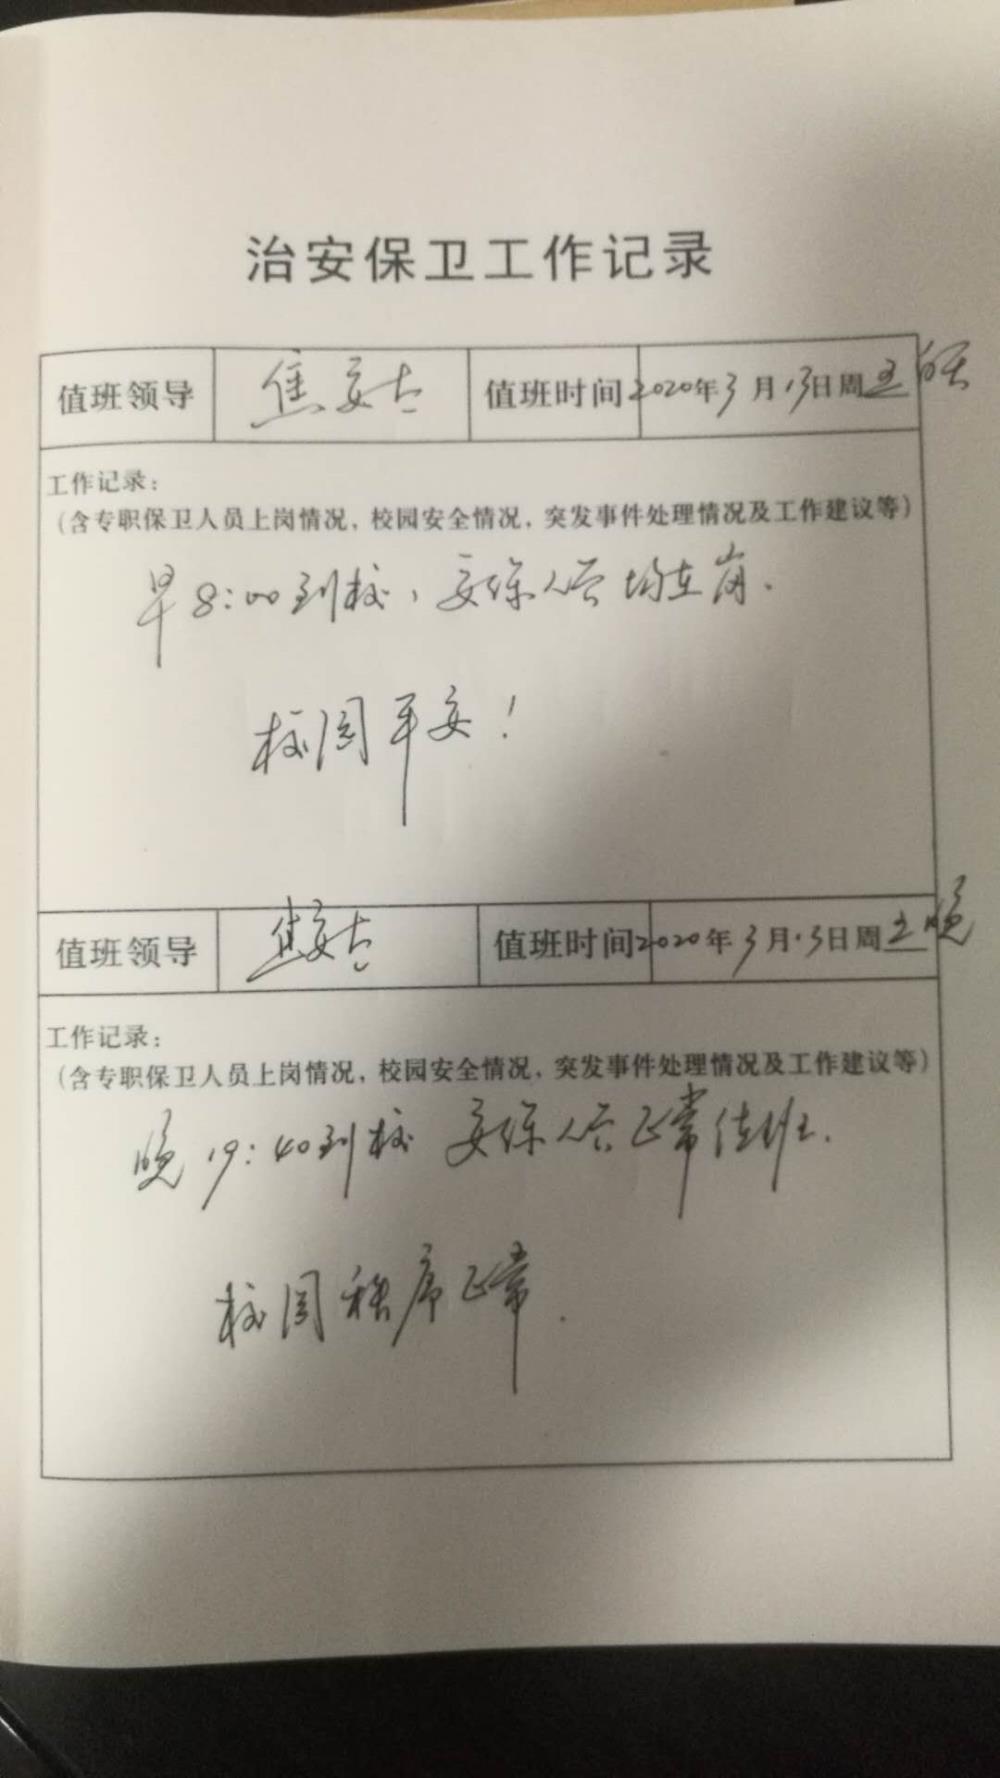 治安保卫工作记录
值班领导 焦安 值班时间 2020年3月13日周五 白天
工作记录：
（含专职保卫人员上岗情况，校园安全情况，突发事件处理情况及工作建议等）
早8:00到校，安保人员均在岗.
校园平安！
值班领导 焦安 值班时间 2020年3月13日周五 晚
工作记录：
（含专职保卫人员上岗情况，校园安全情况，突发事件处理情况及工作建议等）
晚19:40到校 安保人员正常值班.
校园秩序正常.